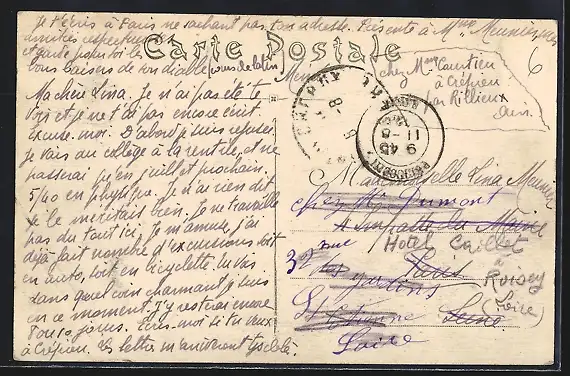 Je t'écris à Paris ne sachant pas ton adresse. Présente à Mme Meunier mes
amitiés respectueuses
et garde pour toi les
bons baisers de ton diable
Carte Postale
6
chez Mme
à Crépieu
par Rillieux
Ain.
Ma chère Lina. Je n'ai pas été te
voir et je ne t'ai pas encore écrit
excuse-moi. D'abord je suis refusée,
je vais au collège à la rentrée, et ne
passerai qu'en juillet prochain.
5/40 en physique. Je n'ai rien dit
je le méritais bien. Je ne travaille
pas du tout ici. Je m'amuse, j'ai
déjà fait nombre d'excursions soit
en auto, soit en bicyclette. Tu vois
dans quel coin charmant je suis
en ce moment. J'y resterai encore
8 ou 10 jours. Écris-moi si tu veux
à Crépieu. Les lettres m'arriveront
11 -8
9 45
Mademoiselle Lina Meunier
chez Mr Dumont
4 Impasse du Maine
Paris
Hôtel Caillet
à
Roisey
(Loire)
3 rue
des jardins
St Etienne
Loire